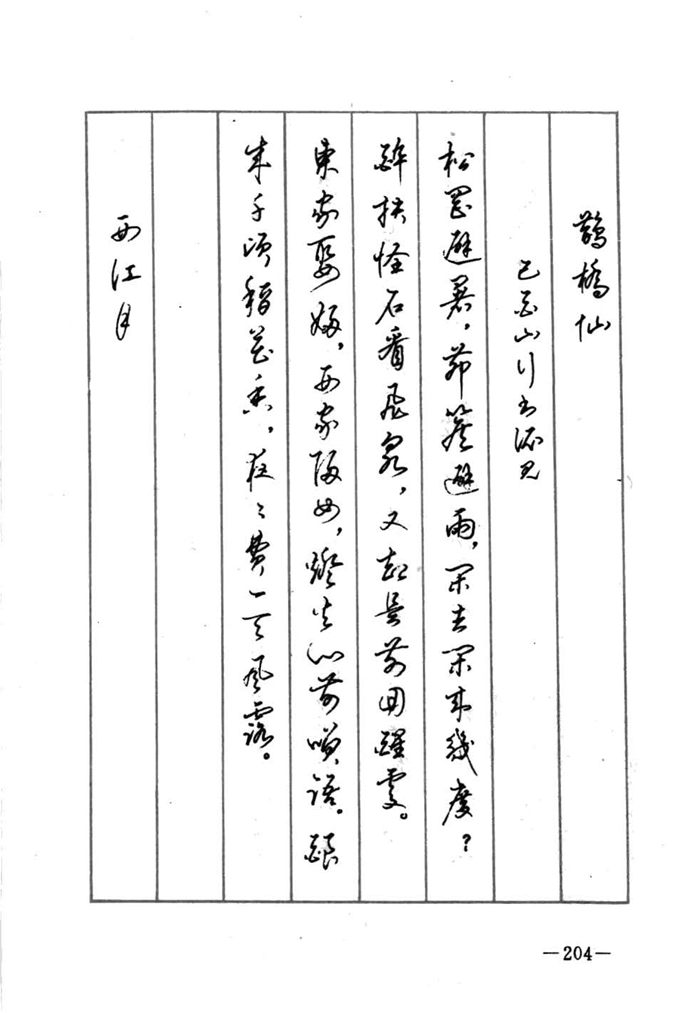 鹊桥仙
己酉山行书所见
松冈避暑，茆簷避雨，闲去闲来几度？
醉扶怪石看飞泉，又却是前回醒处。
东家娶妇，西家归女，灯火门前笑语。酿
成千顷稻花香，夜夜费一天风露。
西江月
—204—